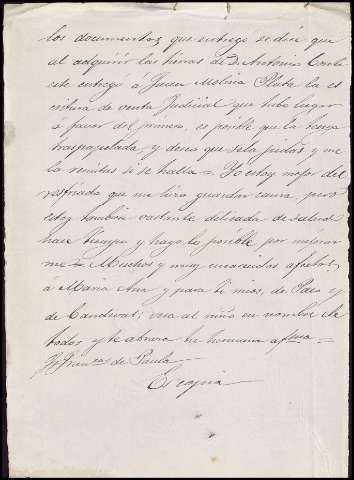 los documentos que entrego se dice que
al adquirir las tierras de D. Antonio Conde
este entregó á Juan Molina Plata la es
critura de venta Judicial que hubo lugar
á favor del primero, es posible que la tenga
traspapelada, y deseo que se la pidas y me
la remitas si se halla = Yo estoy mejor del
resfriado que me hizo guardar cama, pero
estoy tambien bastante delicada de salud
hace tiempo y hago lo posible por mejorar
me = Muchos y muy encarecidos afectos
á Maria Ana y para ti mios, de Paco y
de Candelas; besa al niño en nombre de
todos y te abraza tu hermana afma =
Fran.ca de Paula
Es copia